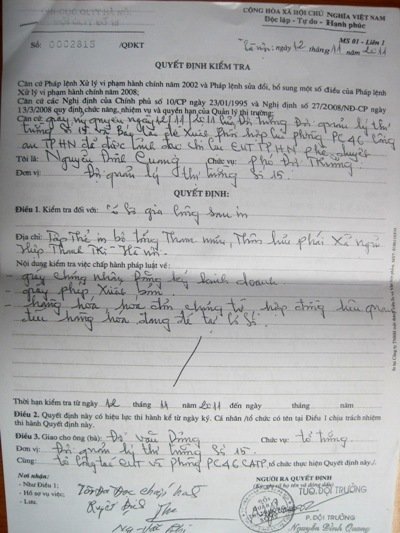 CHI CỤC QLTT HÀ NỘI
CỘNG HÒA XÃ HỘI CHỦ NGHĨA VIỆT NAM
Độc lập - Tự do - Hạnh phúc
MS 01 - Liên 1
Số: 0002815 /QĐKT
Hà Nội, ngày 12 tháng 11 năm 2011
QUYẾT ĐỊNH KIỂM TRA
Căn cứ Pháp lệnh Xử lý vi phạm hành chính năm 2002 và Pháp lệnh sửa đổi, bổ sung một số điều của Pháp lệnh
Xử lý vi phạm hành chính năm 2008;
Căn cứ các Nghị định của Chính phủ số 10/CP ngày 23/01/1995 và Nghị định số 27/2008/NĐ-CP ngày
13/3/2008 quy định chức năng, nhiệm vụ và quyền hạn của Quản lý thị trường;
Căn cứ giấy ủy quyền ngày 11 của Đội trưởng Đội quản lý thị
trường Số 15 và đề xuất phối hợp của phòng PC46 Công
an TPHN lãnh đạo Chi cục QLTT TPHN phê duyệt
Tôi là: Nguyễn Đình Quang Chức vụ: Phó Đội Trưởng
Đơn vị: Đội quản lý thị trường Số 15
QUYẾT ĐỊNH:
Điều 1. Kiểm tra đối với: Cơ Sở gia công sau in
Địa chỉ: Tập Thể in bộ tổng Tham mưu, Thôn hữu
Hiệp Thanh Trì - Hà nội
Nội dung kiểm tra việc chấp hành pháp luật về:
giấy chứng nhận đăng ký kinh doanh
giấy phép Xuất bản
hàng hóa hóa đơn chứng từ hợp đồng liên quan
đến hàng hóa đang để tại Cơ Sở
Thời hạn kiểm tra từ ngày 12 tháng 11 năm 2011 đến ngày tháng năm
Điều 2. Quyết định này có hiệu lực thi hành kể từ ngày ký. Cá nhân /tổ chức có tên tại Điều 1 chịu trách nhiệm
thi hành Quyết định này.
Điều 3. Giao cho ông (bà): Đỗ Văn Dũng Chức vụ: tổ trưởng
Đơn vị: Đội quản lý thị trường Số 15
Cùng: tổ công tác và Phòng PC46 CATP tổ chức thực hiện Quyết định này./.
Nơi nhận:
- Như Điều 1;
- Hồ sơ vụ việc;
- Lưu.
Tôi Đã Đọc
Quyết định
NGƯỜI RA QUYẾT ĐỊNH
TUQ. ĐỘI TRƯỞNG
P. ĐỘI TRƯỞNG
Nguyễn Đình Quang